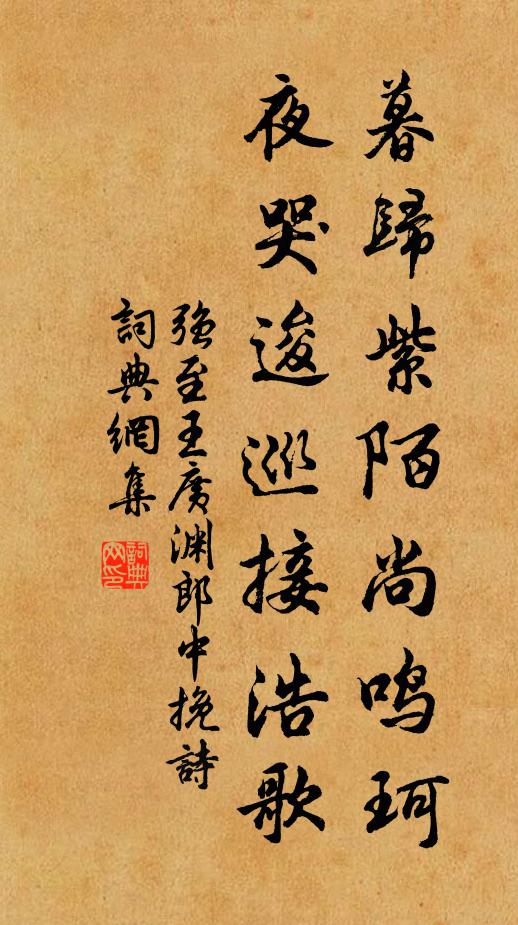 暮歸紫陌尚鳴珂
夜哭逡巡接浩歌
強至王廣淵郎中挽詩
詞典網集
詞典網印